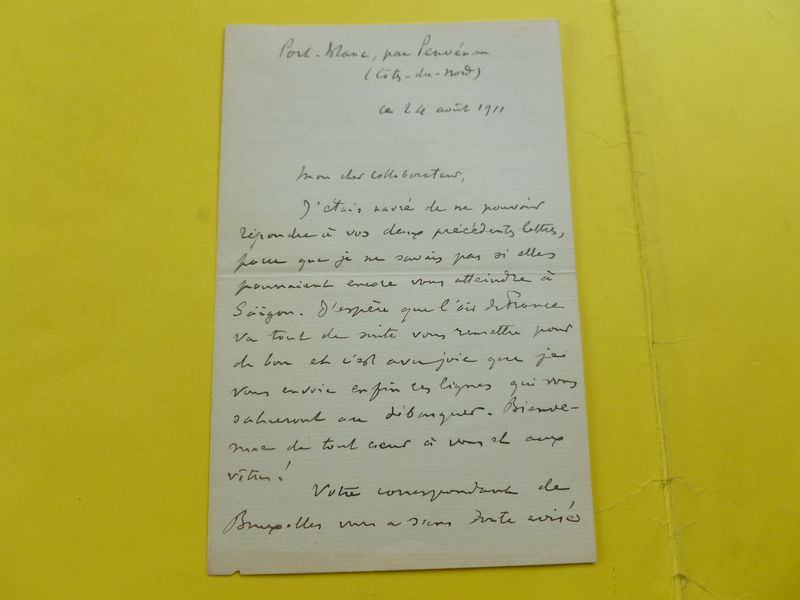 Port-Blanc, par Penvénan
(Côtes-du-Nord)
ce 24 août 1911
Mon cher collaborateur,
J'étais navré de ne pouvoir
répondre à vos deux précédents lettres,
parce que je ne savais pas si elles
pourraient encore vous atteindre à
Saïgon. J'espère que l'air de France
va tout de suite vous remettre pour
de bon et c'est avec joie que je
vous envoie enfin ces lignes qui vous
salueront au débarquer. Bienve-
nue de tout cœur à vous et aux
vôtres!
Votre correspondant de
Bruxelles vous a sans doute avisé